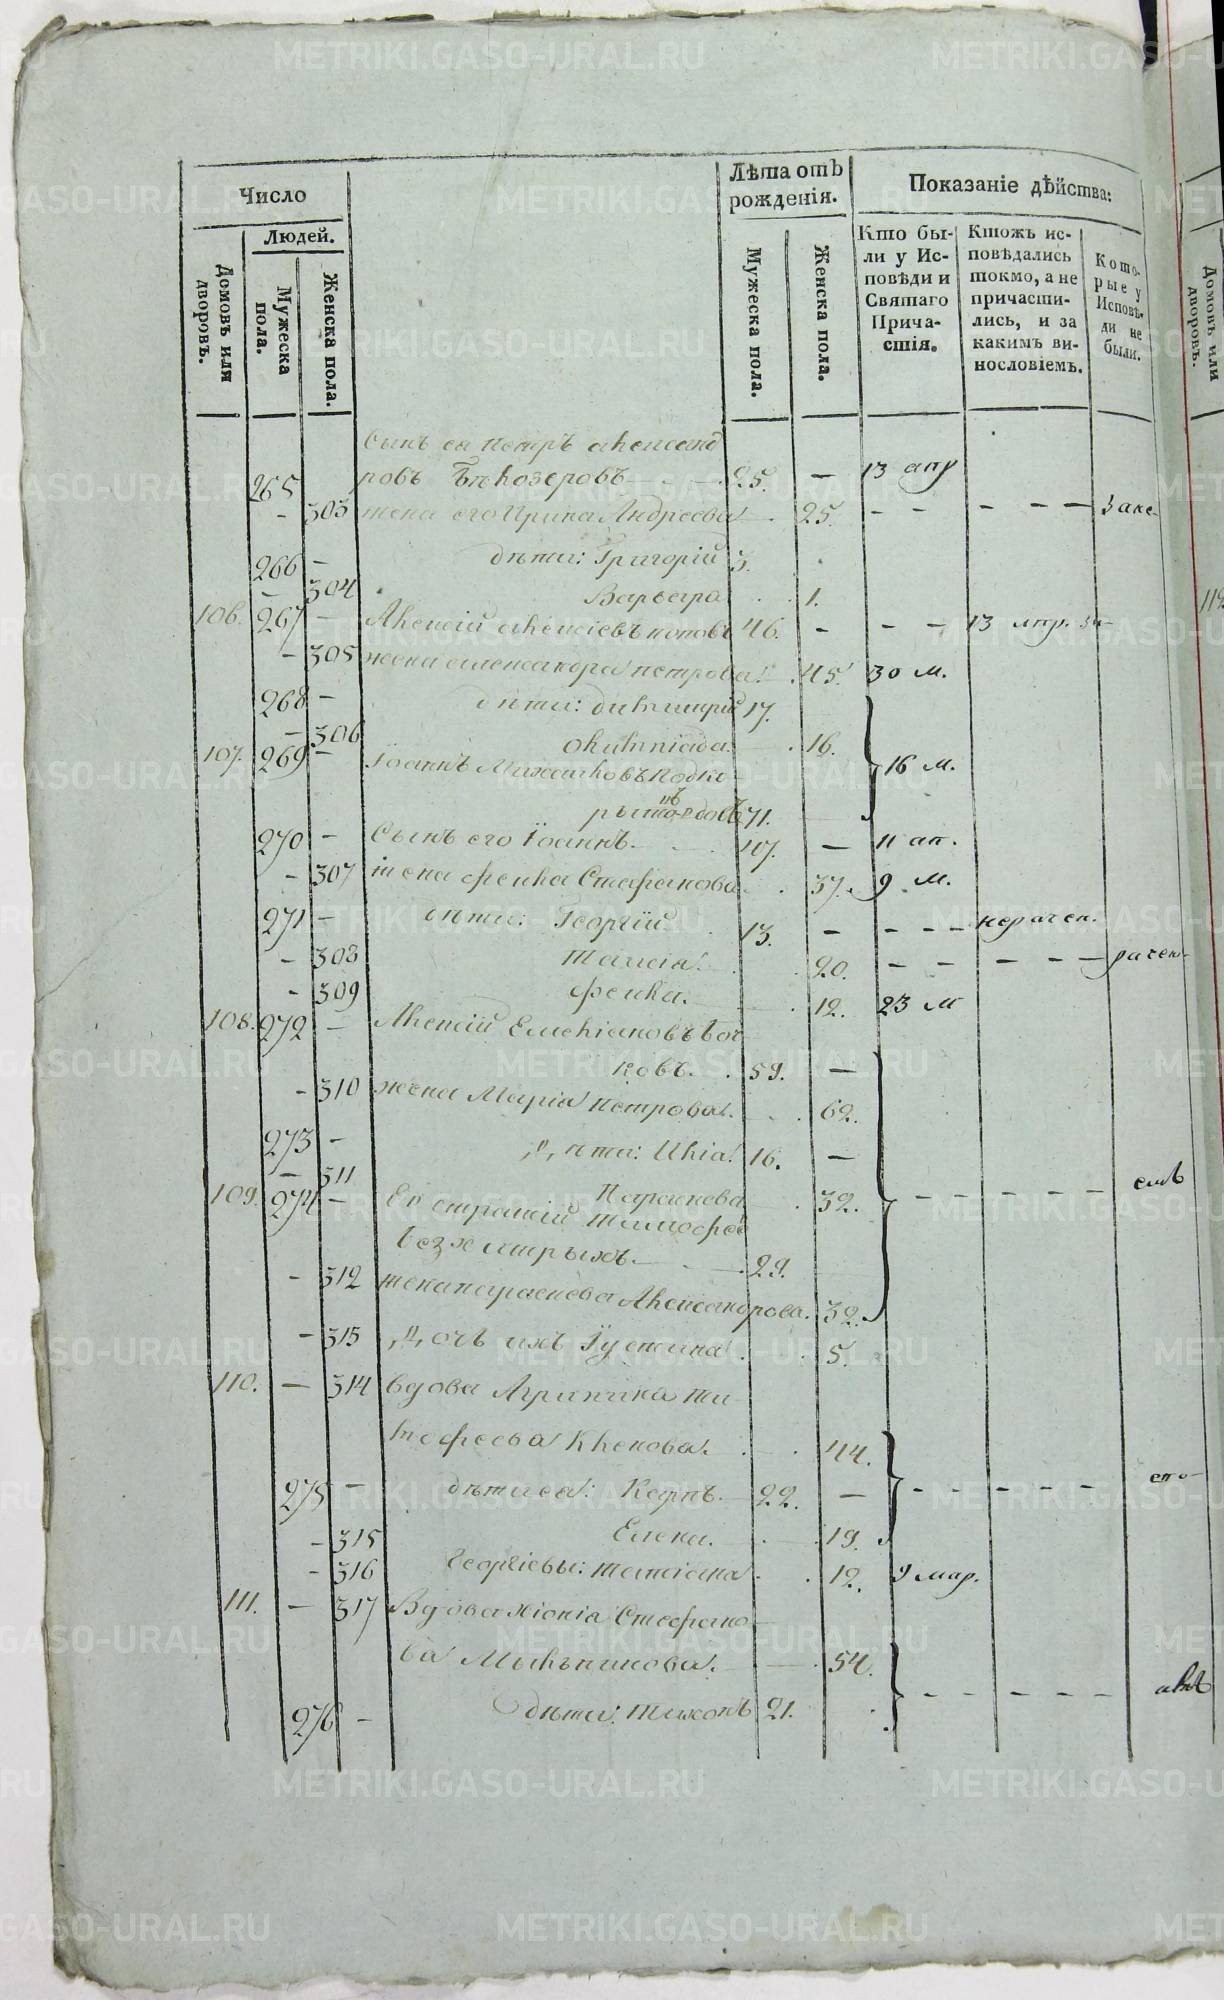 Число
Людей.
Домовъ или дворовъ.
Мужеска пола.
Женска пола.
Лѣта отъ рожденія.
Мужеска пола.
Женска пола.
Показаніе дѣйства:
Кто были у Исповѣди и Святаго Причастія.
Ктожъ исповѣдались токмо, а не причастились, и за какимъ винословіемъ.
Которые у Исповѣди не были.
Домовъ или дворовъ.
сынъ ея Петръ Александ
265 ровъ Бѣлозеровъ 25. — 13 апр
- 303 жена его Ирина Андреева 25. - - - - -
266 - дѣти: Григорій 3.
- 304 Варвара 1.
106. 267 - Алексій Алексіевъ Поповъ 46. - - - 13 апр.
- 305 жена Александра Петрова 45. 30 м.
268 - дѣти: Димитрій 17.
- 306 Олимпіада 16.
16 м.
107. 269 - Іоаннъ Михайловъ Подко
рыто 71.
270 - Сынъ его Іоаннъ. 47. — 11 ап.
- 307 жена Фекла Стефанова 37. 9 м.
271 - дѣти: Георгій 13. - - - - нерачен.
- 308 Таисія 20. - - - - - рачен-
- 309 Фекла. 12. 23 м
108. 272 - Алексій Емеліановъ Боч
ковъ. 59. —
- 310 жена Марія Петрова. 62.
273 - дѣти: Илія 16. —
- 311 Параскева 32. - - - - -
109. 274 - Ев Тимофеев
29.
- 312 жена Параскева Александрова. 32.
- 313 дочь ихъ Іустина 5.
110. — 314 вдова Агрипина Ти
мофеева 44.
275 - дѣти ея: Карпъ. 22. — - - - - -
- 315 Елена. 19.
- 316 Георгіевы: Татіана 12. 9 мар.
111. — 317 Вдова Хіонія Стефано
ва Мыльникова. 54.
276 - дѣти: Тихонъ 21. - - - - -
METRIKI.GASO-URAL.RU